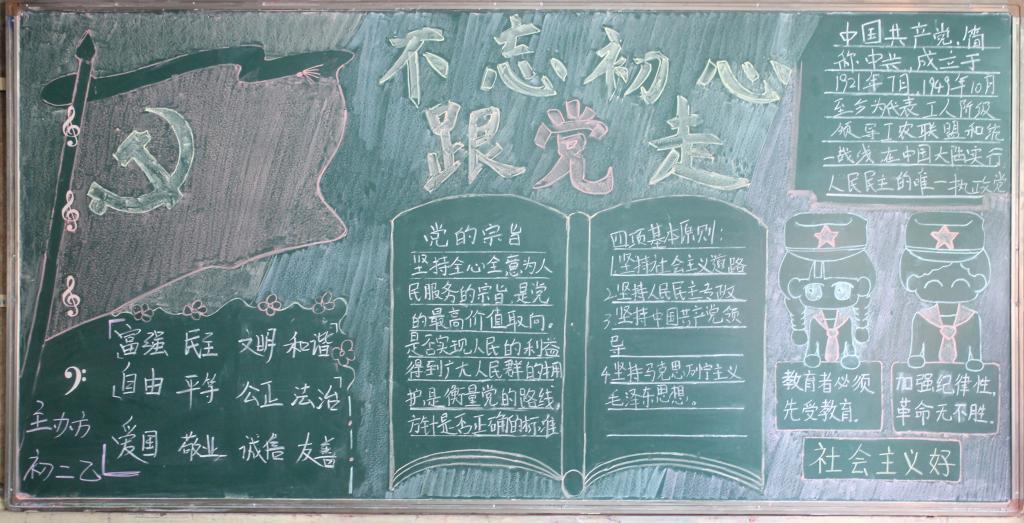 不忘初心
跟党走
中国共产党,简
称中共,成立于
1921年7月,1949年10月
至今为代表工人阶级
领导工农联盟和统
一战线在中国大陆实行
人民民主的唯一执政党
党的宗旨
坚持全心全意为人
民服务的宗旨是党
的最高价值取向。
是否实现人民的利益
得到广大人民群的拥
护是衡量党的路线,
方针是否正确的标准
四项基本原则:
1坚持社会主义道路
2坚持人民民主专政
3坚持中国共产党领
导
4坚持马克思列宁主义
毛泽东思想。
富强 民主 文明 和谐
自由 平等 公正 法治
爱国 敬业 诚信 友善
主办方
初二乙
教育者必须
先受教育。
加强纪律性,
革命无不胜.
社会主义好